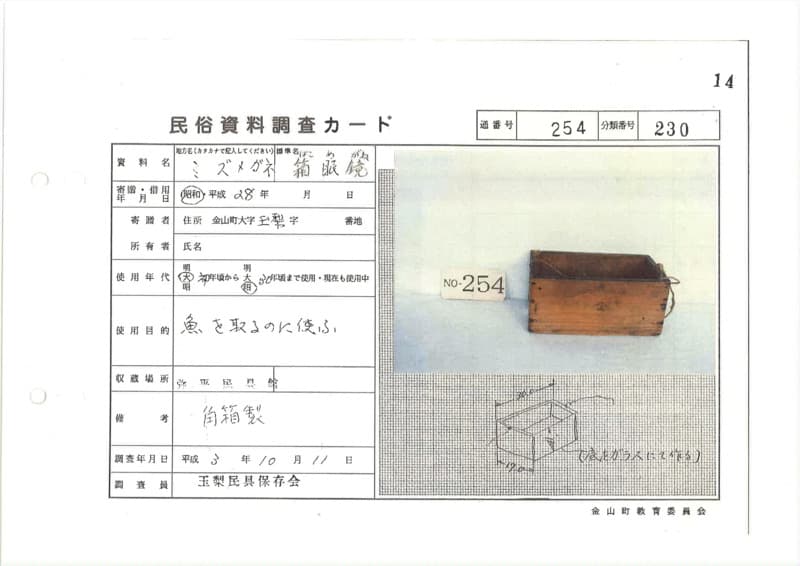 14
民俗資料調査カード
通番号 254 分類番号 230
資料名 地方名(カタカナで記入してください) ミズメガネ 標準名 箱眼鏡 はこ め がね
寄贈・借用年月日 昭和・平成 28年 月 日
寄贈者 住所 金山町大字 玉梨 字 番地
所有者 氏名
使用年代 明 大 昭 年頃から 明 大 昭 30年頃まで使用・現在も使用中
使用目的 魚を取るのに使ふ
収蔵場所 民具館
備考 角箱製
調査年月日 平成 3 年 10 月 11 日
調査員 玉梨民具保存会
NO-254
30.0
17.0
(底をガラスにて作る)
金山町教育委員会